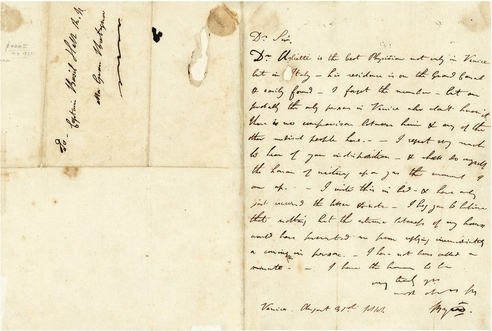 To -
Captain Basil Hall R. N.
Dr. Sir,
Dr. Aglietti is the best Physician not only in Venice
but in Italy - his residence is on the Grand Canal
& easily found - I forget the number - but am
probably the only person in Venice who don't know it
There is no comparison between him & any of the
other medical people here. - I regret very much
to hear of your indisposition - & shall do myself
the honour of waiting upon you the moment I
am up. - I write this in bed - & have only
just received the letter & note - I beg you to believe
that nothing but the extreme lateness of my hours
could have prevented me from replying immediately
or coming in person. - I have not been called a
minute. - I have the honour to be
very truly yrs
Byron
Venice August 31st 1818